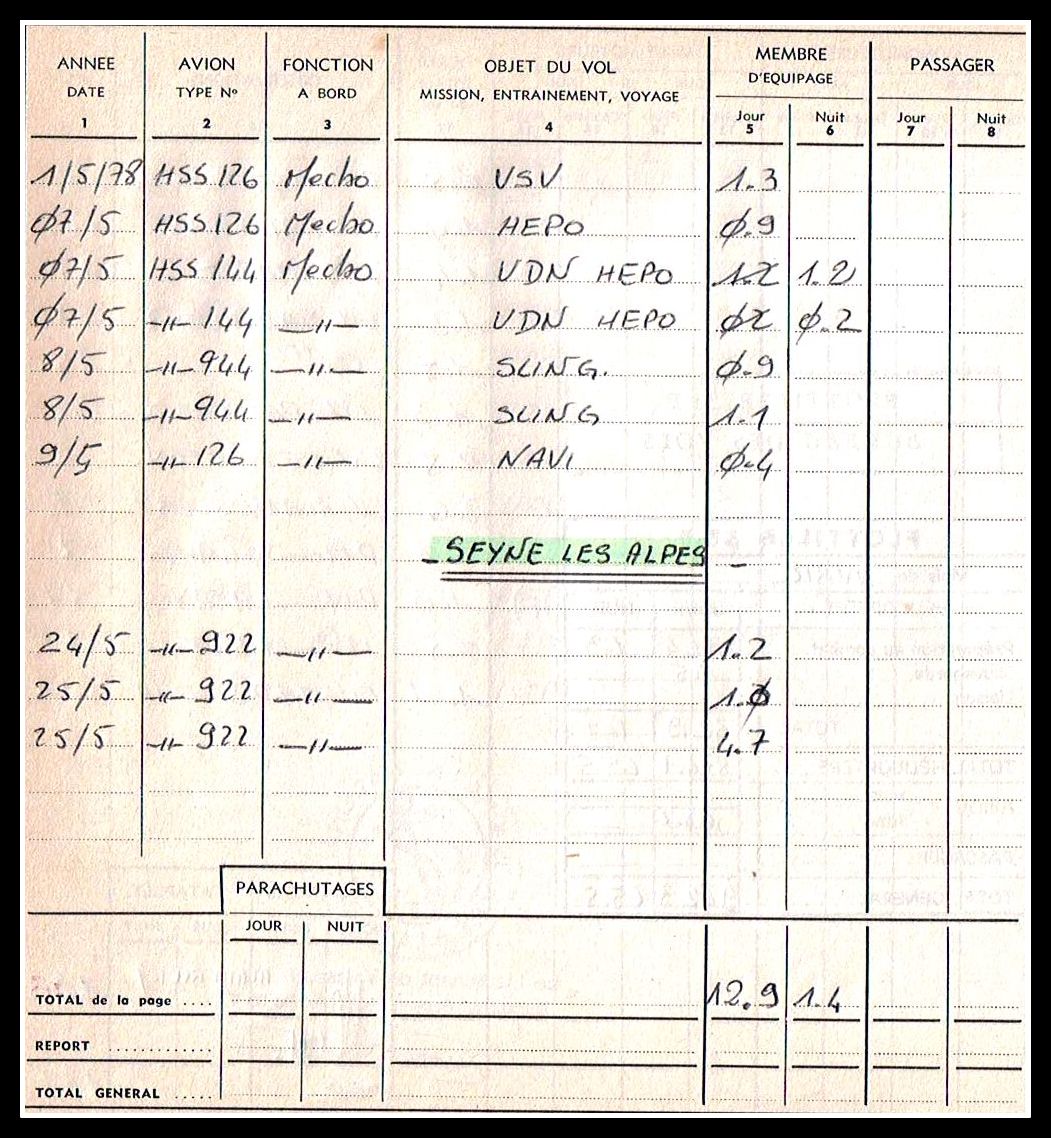 ANNEE AVION FONCTION OBJET DU VOL MEMBRE PASSAGER
DATE TYPE No A BORD MISSION, ENTRAINEMENT, VOYAGE D'EQUIPAGE
Jour Nuit Jour Nuit
1 2 3 4 5 6 7 8
1/5/78 HSS 126 Mecbo VSV 1.3
Ø7/5 HSS 126 Mecbo HEPO Ø.9
Ø7/5 HSS 144 Mecbo VDN HEPO 1.2 1.2
Ø7/5 -"- 144 -"- VDN HEPO Ø2 Ø.2
8/5 -"- 944 -"- SLING. Ø.9
8/5 -"- 944 -"- SLING 1.1
9/5 -"- 126 -"- NAVI Ø.4
- SEYNE LES ALPES -
24/5 -"- 922 -"- 1.2
25/5 -"- 922 -"- 1.Ø
25/5 -"- 922 -"- 4.7
PARACHUTAGES
JOUR NUIT
TOTAL de la page .... 12.9 1.4
REPORT ............
TOTAL GENERAL .....